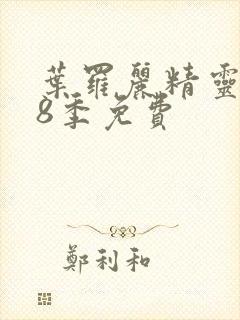 葉羅麗精靈
8季免費
鄭利和